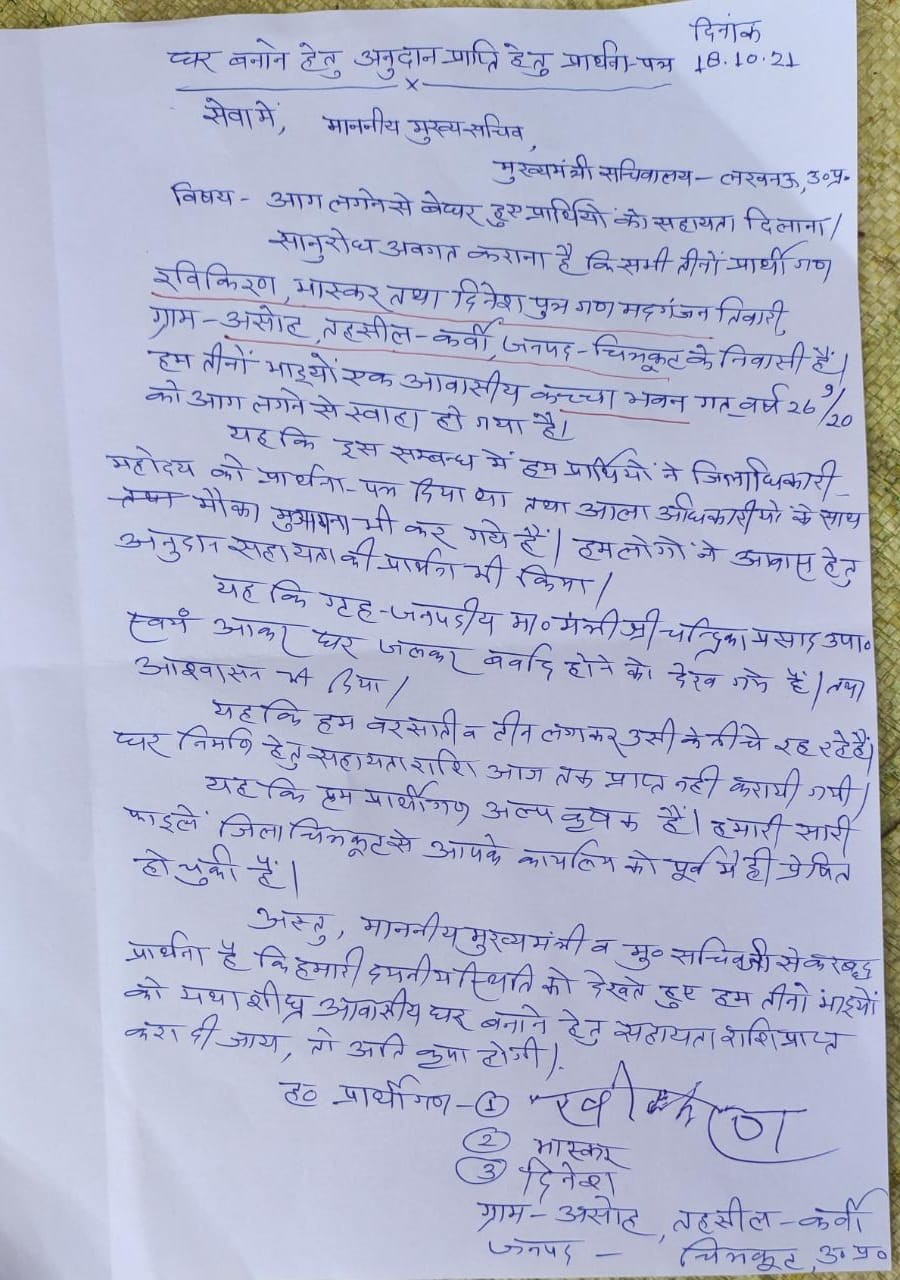 दिनांक
घर बनाने हेतु अनुदान प्राप्ति हेतु प्रार्थना-पत्र 18.10.21
सेवा में, माननीय मुख्य सचिव,
मुख्यमंत्री सचिवालय - लखनऊ, उ०प्र०
विषय - आग लगने से बेघर हुए प्रार्थियों को सहायता दिलाना।
सानुरोध अवगत कराना है कि सभी तीनों प्रार्थीगण
रविकिरण, भास्कर तथा दिनेश पुत्रगण मदगंजन तिवारी,
ग्राम - असोह, तहसील - कर्वी, जनपद - चित्रकूट के निवासी हैं।
हम तीनों भाइयों एक आवासीय कच्चा भवन गत वर्ष 26 9/20
को आग लगने से स्वाहा हो गया है।
यह कि इस सम्बन्ध में हम प्रार्थियों ने जिलाधिकारी-
महोदय को प्रार्थना-पत्र दिया था तथा आला अधिकारीयों के साथ
मौका मुआयना भी कर गये हैं। हम लोगों ने आवास हेतु
अनुदान सहायता की प्रार्थना भी किया।
यह कि गृह-जनपदीय मा० मंत्री श्री चन्द्रिका प्रसाद उपा०
स्वयं आकर घर जलकर बर्बाद होने को देख गये हैं। तथा
आश्वासन भी दिया।
यह कि हम बरसाती व टीन लगाकर उसी के नीचे रह रहे हैं।
घर निर्माण हेतु सहायता राशि आज तक प्राप्त नही करायी गयी।
यह कि हम प्रार्थीगण अल्प कृषक हैं। हमारी सारी
फाइलें जिला चित्रकूट से आपके कार्यालय को पूर्व में ही प्रेषित
हो चुकी हैं।
अस्तु, माननीय मुख्यमंत्री व मु० सचिव जी से करबद्ध
प्रार्थना है कि हमारी दयनीय स्थिति को देखते हुए हम तीनों भाइयों
को यथाशीघ्र आवासीय घर बनाने हेतु सहायता राशि प्राप्त
करा दी जाय, तो अति कृपा होगी।
ह० प्रार्थीगण - ①
② भास्कर
③ दिनेश
ग्राम - असोह, तहसील - कर्वी
जनपद - चित्रकूट, उ०प्र०